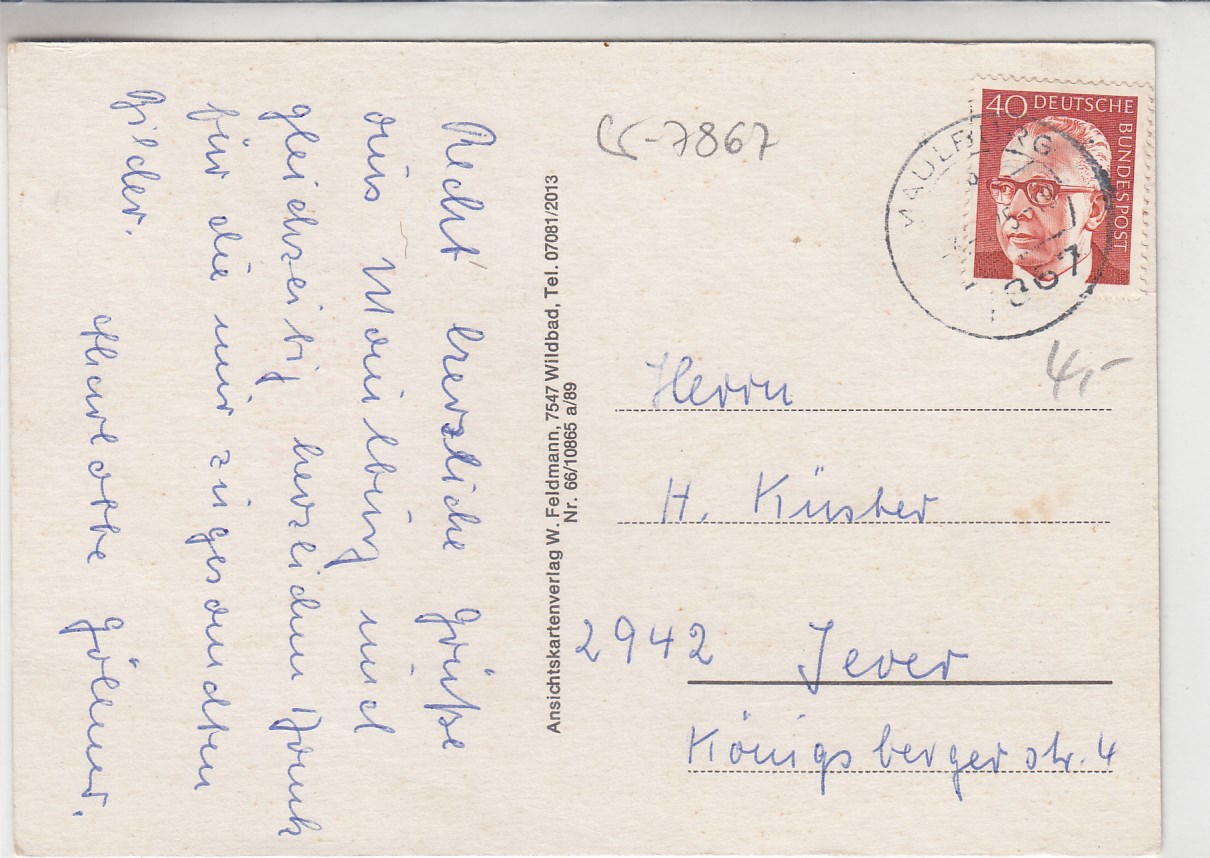 Recht herzliche Grüße
aus Maulburg und
gleichzeitig herzlichen Dank
für die mir zugesandten
Bilder.
Ansichtskartenverlag W. Feldmann, 7547 Wildbad, Tel. 07081/2013
Nr. 66/10865 a/89
7867
40 DEUTSCHE BUNDESPOST
MAULBURG
7867
4,-
Herrn
H. Küster
2942 Jever
Königsberger str. 4